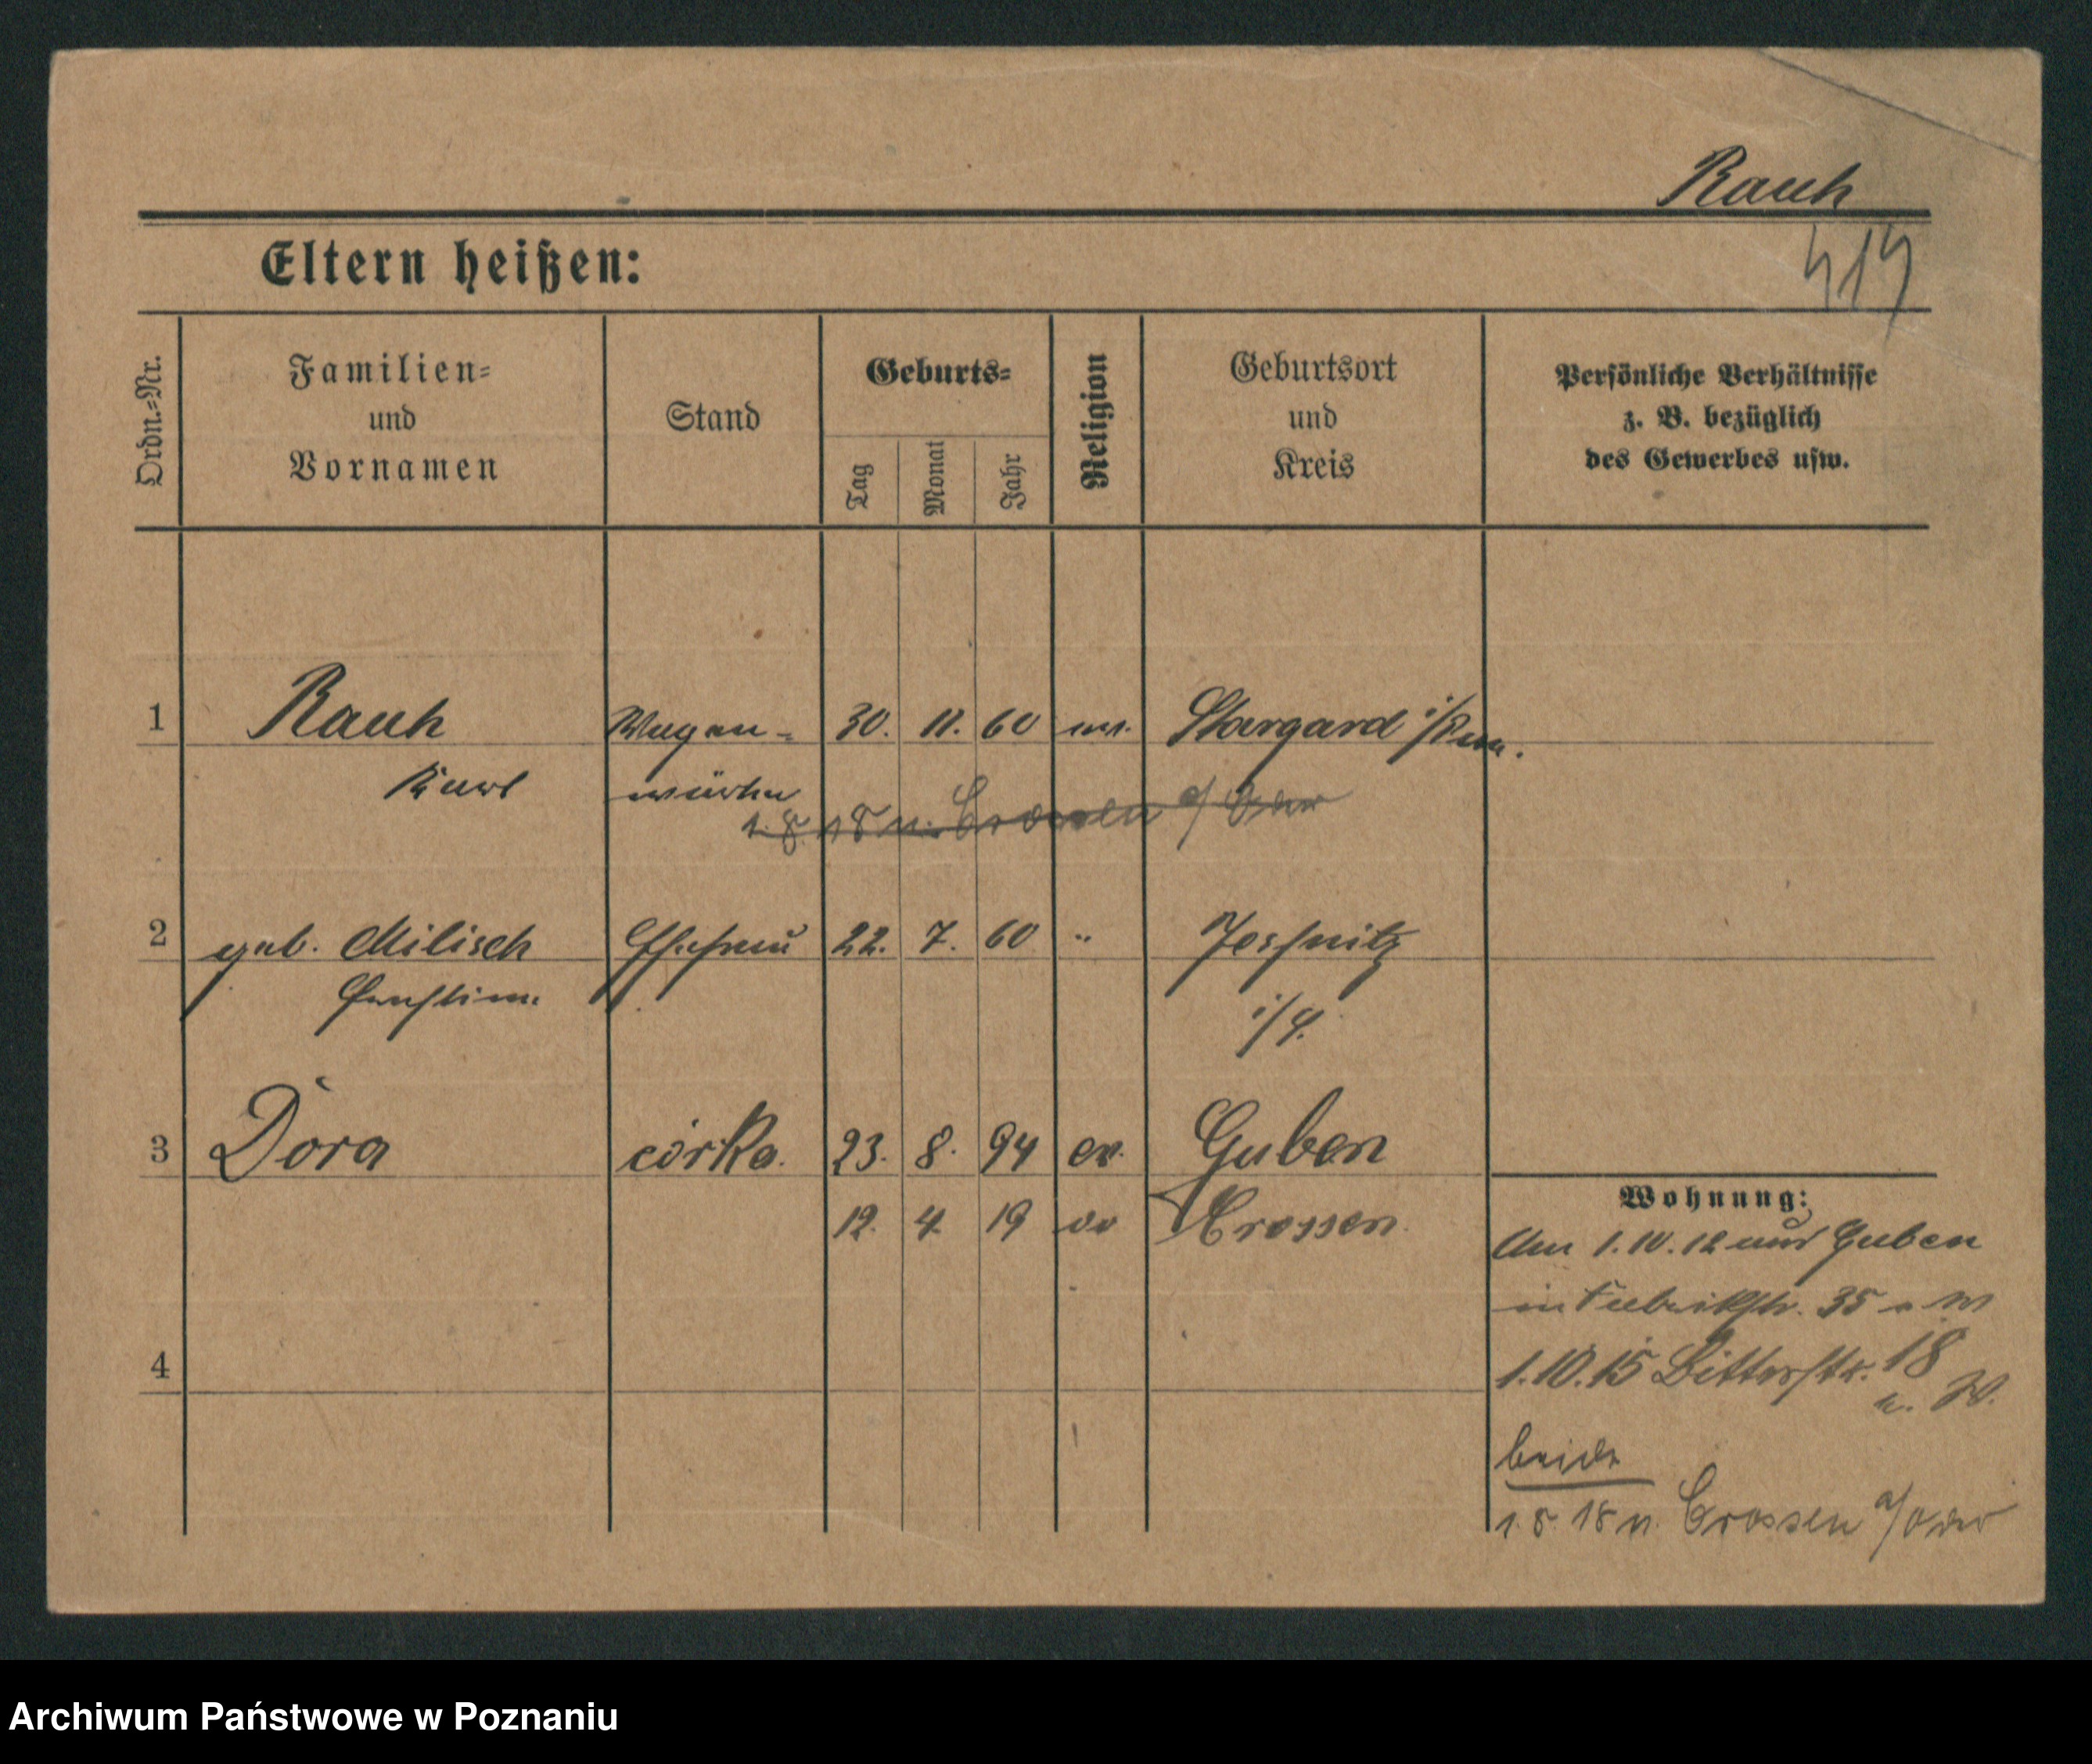 Rauh
Eltern heißen:
Ordn.=Nr.
Familien=
und
Vornamen
Stand
Geburts=
Tag
Monat
Jahr
Religion
Geburtsort
und
Kreis
Persönliche Verhältnisse
z. B. bezüglich
des Gewerbes usw.
1 Rauh Wagen= 30. 11. 60 ev. Stargard i/Pom.
Karl wärter
1. 8. 18 n. Crossen a/Oder
2 geb. Milisch Ehefrau 22. 7. 60 " Jessnitz
Ernestine
3 Dora córka. 23. 8. 94 ev. Guben
12. 4. 19 Crossen
Wohnung:
Am 1.10.12 aus Guben
in Fabrikstr. 35
1.10.15 Bitterstr. 18
n. W.
beide
1. 8. 18 n. Crossen a/Oder
4
Archiwum Państwowe w Poznaniu